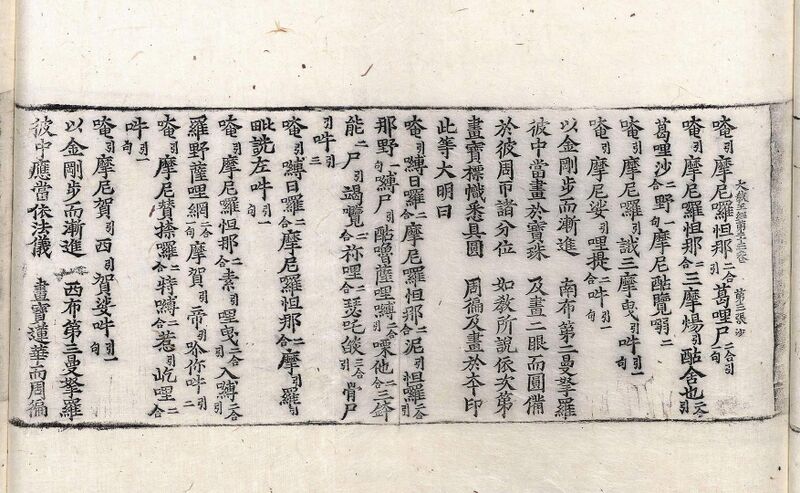 大教王經第十三卷 第三張 沙
唵引摩尼羅怛那二合葛哩尸二合引句
唵引摩尼羅怛那二合三摩煬引酤舍也二合引
葛哩沙二合野句摩尼酤覽嚩二
唵引摩尼羅誐三摩曳引吽引一
唵引摩尼娑引哩提二合吽引一
以金剛步而漸進 南布第二曼拏羅
彼中當畫於寶珠 及畫二眼而圓備
於彼周帀諸分位 如教所說依次第
畫寶摽幟悉具圓 周徧及畫於本印
此等大明曰
唵引嚩日囉二合摩尼羅怛那二合泥引怛囉二合引
那野一句嚩尸引酤嚕薩哩嚩二合㗚他二合三鉢
能二尸引竭覽二合祢哩二合瑟吒焰三合引骨尸
引吽引三
唵引嚩日囉二合摩尼羅怛那二合摩引羅引
毗詵左吽引一
唵引摩尼羅怛那二合素引哩曳二合引入嚩二合引
羅野薩哩網二合句摩賀引帝引𠺁你吽引二
唵引摩尼贊捺囉二合特嚩二合惹引屹哩二合
吽引一句
唵引摩尼賀引西引賀娑吽引句一
以金剛步而漸進 西布第三曼拏羅
彼中應當依法儀 畫寶蓮華而周徧